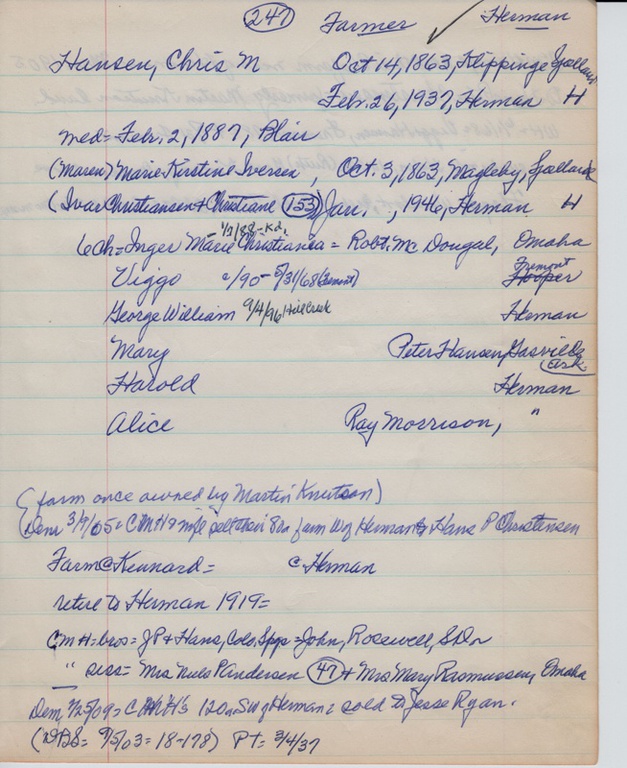 247 Farmer ✓ Herman
Hansen, Chris M Oct 14, 1863, Klippinge Sjælland
Feb. 26, 1937, Herman H
med = Febr. 2, 1887, Blair
(Maren) Marie Kirstine Iversen, Oct. 3, 1863, Magleby, Sjælland
(Ivar Christiansen + Christiane 153) Jan. , 1946, Herman H
1/7/88 - Kd.
6 ch = Inger Marie Christiania = Robt. McDougel, Omaha
Viggo c/90 - 5/31/68 (Fremont) Fremont Hooper
George William 9/4/96 Hill Creek Herman
Mary Peter Hansen, Gasville Ark
Harold Herman
Alice Ray Morrison, "
(farm once owned by Martin Knutson)
(Dem 3/9/05 = CMH + wife sell their 80a farm W of Herman to Hans P Christensen
Farm @ Kennard = c Herman
retire to Herman 1919 =
CMH = bros = JP + Hans, Colo. Spgs = John, Rosewell, SD
" siss = Mrs Niels P Andersen 47 + Mrs Mary Rasmussen, Omaha
Dem 2/25/09 = CMH's 120a SW of Herman = sold to Jesse Ryan.
( = 9/5/03 = 18-178) PT = 3/4/37